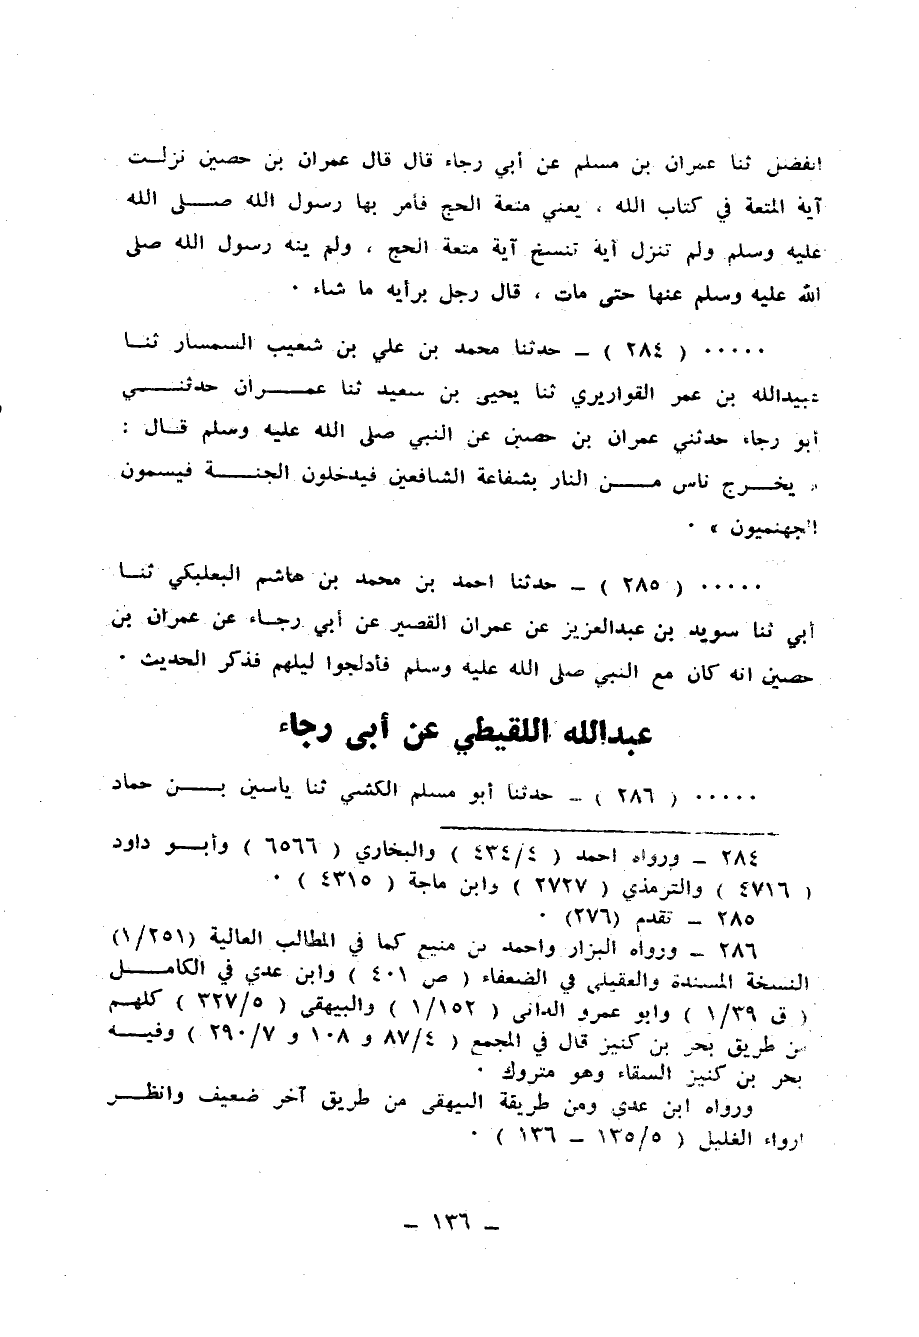 المفضل ثنا عمران بن مسلم عن أبي رجاء قال قال عمران بن حصين نزلت
آية المتعة في كتاب الله ، يعني متعة الحج فأمر بها رسول الله صلى الله
عليه وسلم ولم تنزل آية تنسخ آية متعة الحج ، ولم ينه رسول الله صلى
الله عليه وسلم عنها حتى مات ، قال رجل برأيه ما شاء ٠
٠٠٠٠٠ ( ٢٨٤ ) ـ حدثنا محمد بن علي بن شعيب السمسار ثنا
عبيدالله بن عمر القواريري ثنا يحيى بن سعيد ثنا عمران حدثني
أبو رجاء حدثني عمران بن حصين عن النبي صلى الله عليه وسلم قال :
« يخرج ناس من النار بشفاعة الشافعين فيدخلون الجنة فيسمون
الجهنميون » ٠
٠٠٠٠٠ ( ٢٨٥ ) ـ حدثنا احمد بن محمد بن هاشم البعلبكي ثنا
أبي ثنا سويد بن عبدالعزيز عن عمران القصير عن أبي رجاء عن عمران بن
حصين انه كان مع النبي صلى الله عليه وسلم فأدلجوا ليلهم فذكر الحديث ٠
عبدالله اللقيطي عن أبى رجاء
٠٠٠٠٠ ( ٢٨٦ ) ـ حدثنا أبو مسلم الكشي ثنا ياسين بن حماد
٢٨٤ ـ ورواه احمد ( ٤٣٤/٤ ) والبخاري ( ٦٥٦٦ ) وأبو داود
( ٤٧١٦ ) والترمذي ( ٢٧٢٧ ) وابن ماجة ( ٤٣١٥ ) ٠
٢٨٥ ـ تقدم (٢٧٦) ٠
٢٨٦ ـ ورواه البزار واحمد بن منيع كما في المطالب العالية (١/٢٥١)
النسخة المسندة والعقيلي في الضعفاء ( ص ٤٠١ ) وابن عدي في الكامل
( ق ١/٣٩ ) وابو عمرو الدانى ( ١/١٥٢ ) والبيهقى ( ٣٢٧/٥ ) كلهم
من طريق بحر بن كنيز قال في المجمع ( ٨٧/٤ و ١٠٨ و ٢٩٠/٧ ) وفيه
بحر بن كنيز السقاء وهو متروك ٠
ورواه ابن عدي ومن طريقة البيهقى من طريق آخر ضعيف وانظر
ارواء الغليل ( ١٣٥/٥ ـ ١٣٦ ) ٠
ـ ١٣٦ ـ